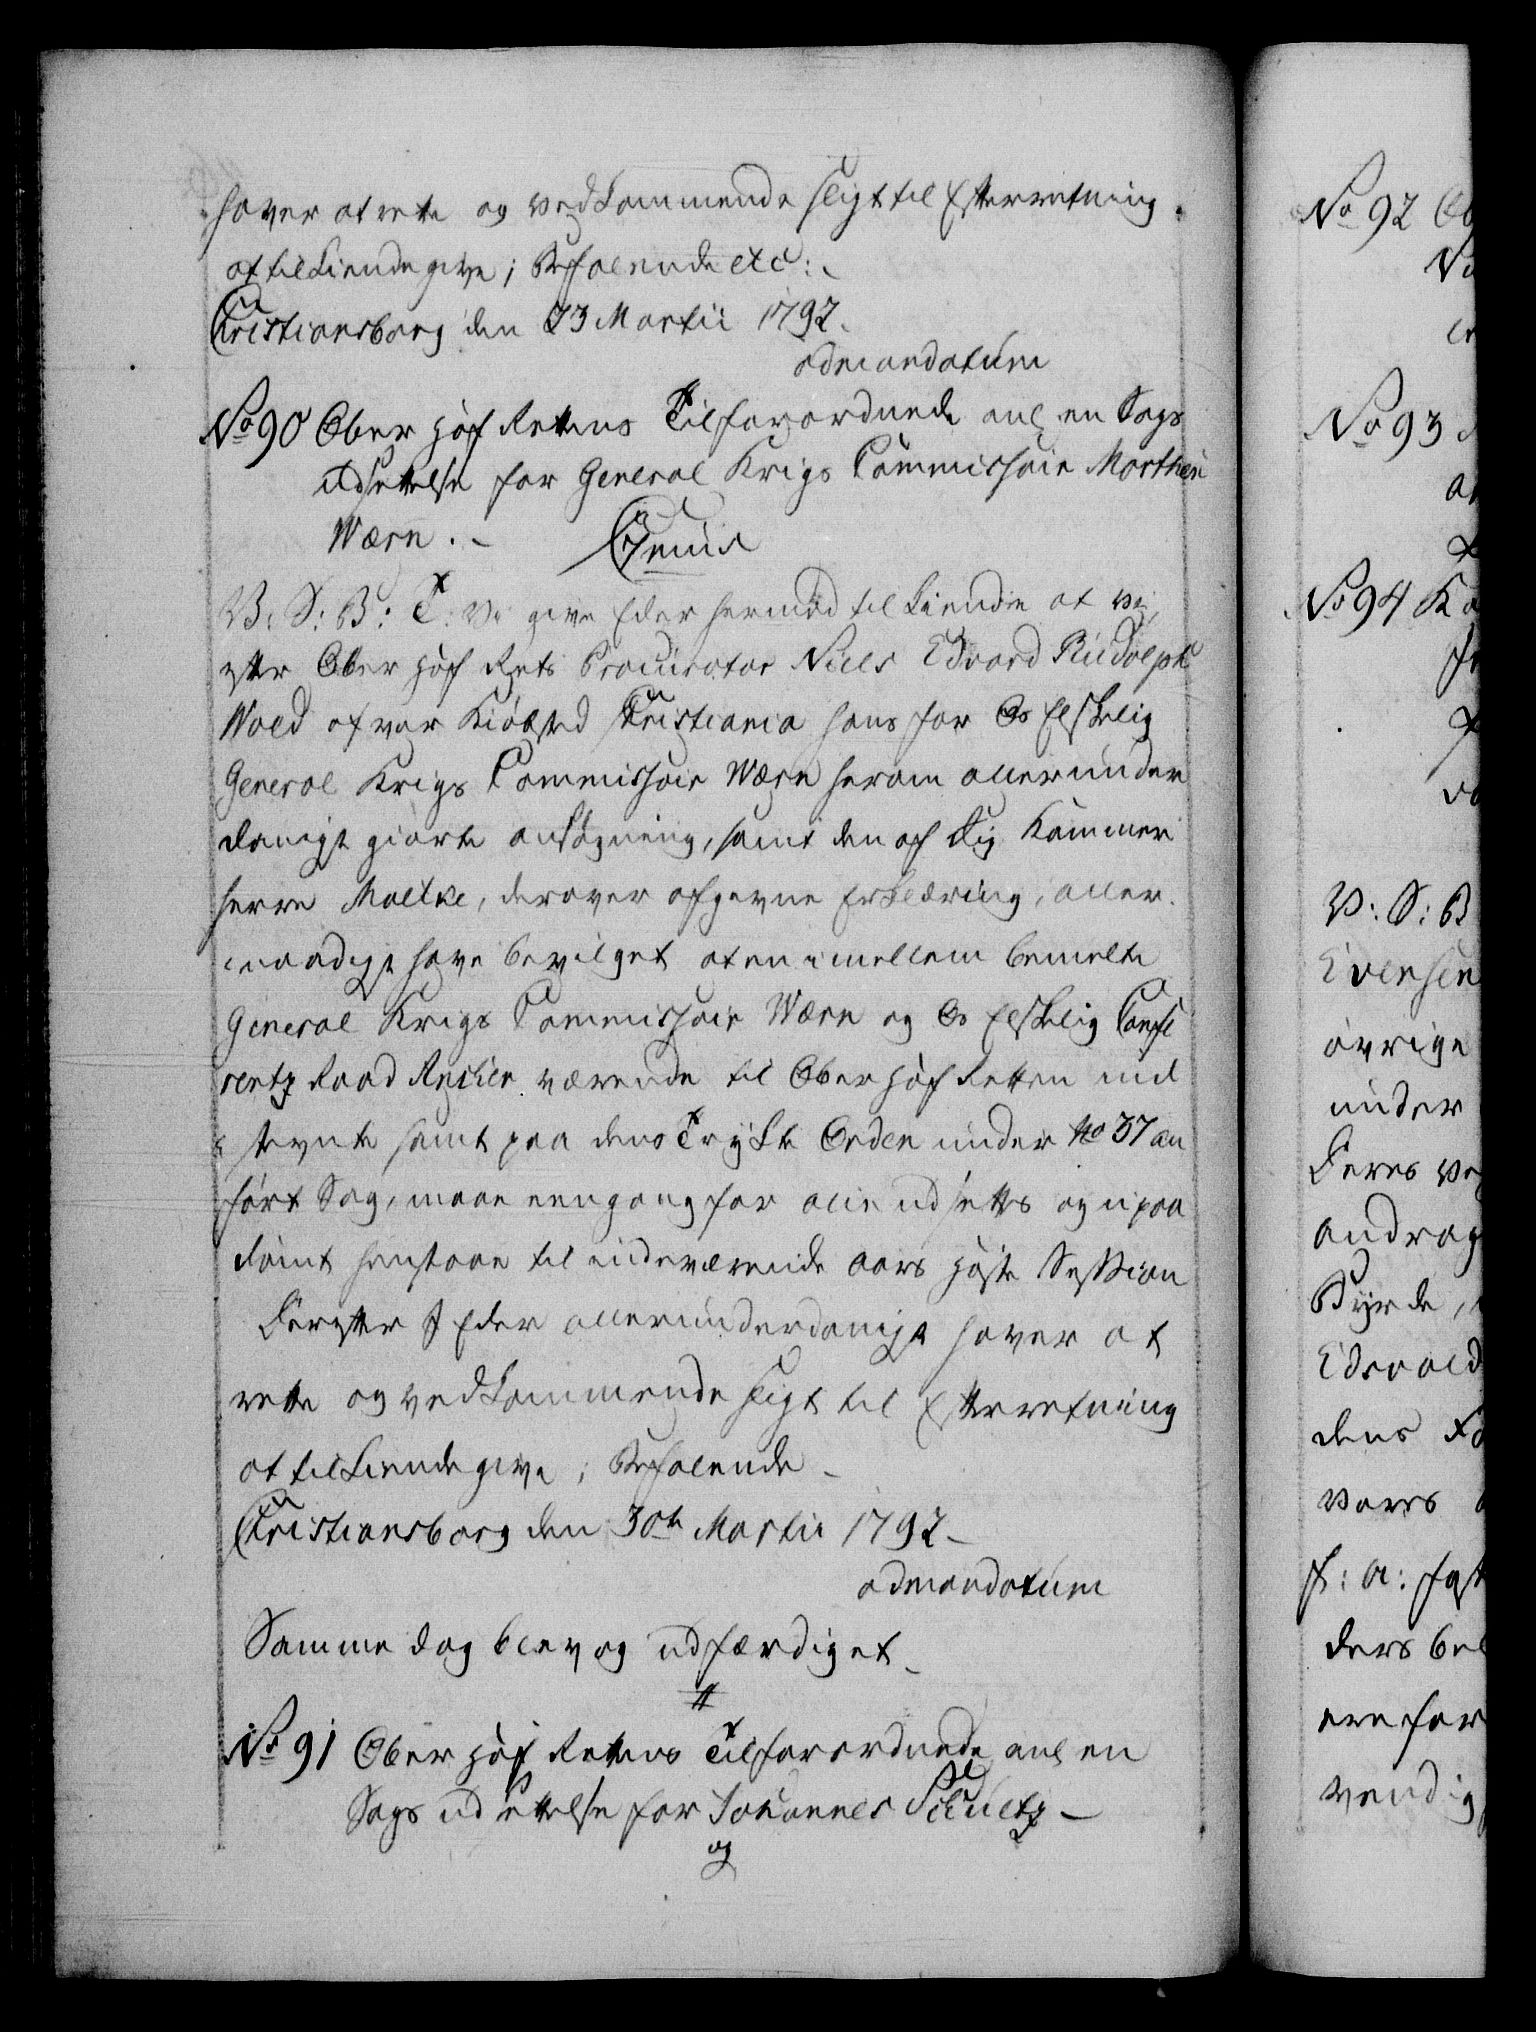 haver at rette og vedkommende sligt til Efterretning
at tilkiende give; Befalende etc:
Christiansborg den 23 Martii 1792.
admandatum
No 90 Ober Hof Rettens Tilforordnede anl en Sags
udsettelse for General Krigs Commissair Morthen
Wærn. - Genius
V: S: B: T: Vi give Eder hermed til Kiende at vi,
efter Ober Hof Rets Procurator Niels Edvard Rudolph
Vold af vor Kiøbsted Christiania hans for Os Elskelig
General Krigs Commissair Wærn herom allerunder
danigst giorte ansøgning, samt den af Dig Kammer
herre Moltke, derover afgivne Erklæring, aller
naadigst have bevilget at en imellem bemelte
General Krigs Commissair Wærn og Os Elskelig Confe
rentz Raad Ancher værende til Ober Hof Retten ind
stevnte samt paa dens Trykte Orden under No 37 an
ført Sag, maae eengang for alle udsettes og upaa
dømt henstaae til indeværende Aars Høste Session
Derefter I Eder allerunderdanigst haver at
rette og vedkommende sligt til Efterretning
at tilkiende give; Befalende -
Christiansborg den 30te Martii 1792 -
admandatum
Samme dag blev og udfærdiget -
No 91 Ober Hof Rettens Tilforordnede anl en
Sags udsettelse for Johannes Schultz -
og
No 92
No 93
No 94
V: S: B
Evensen
øvrige
under
Deres
andrag
Byrde,
Edsvold
dens
vores
f: a:
ders